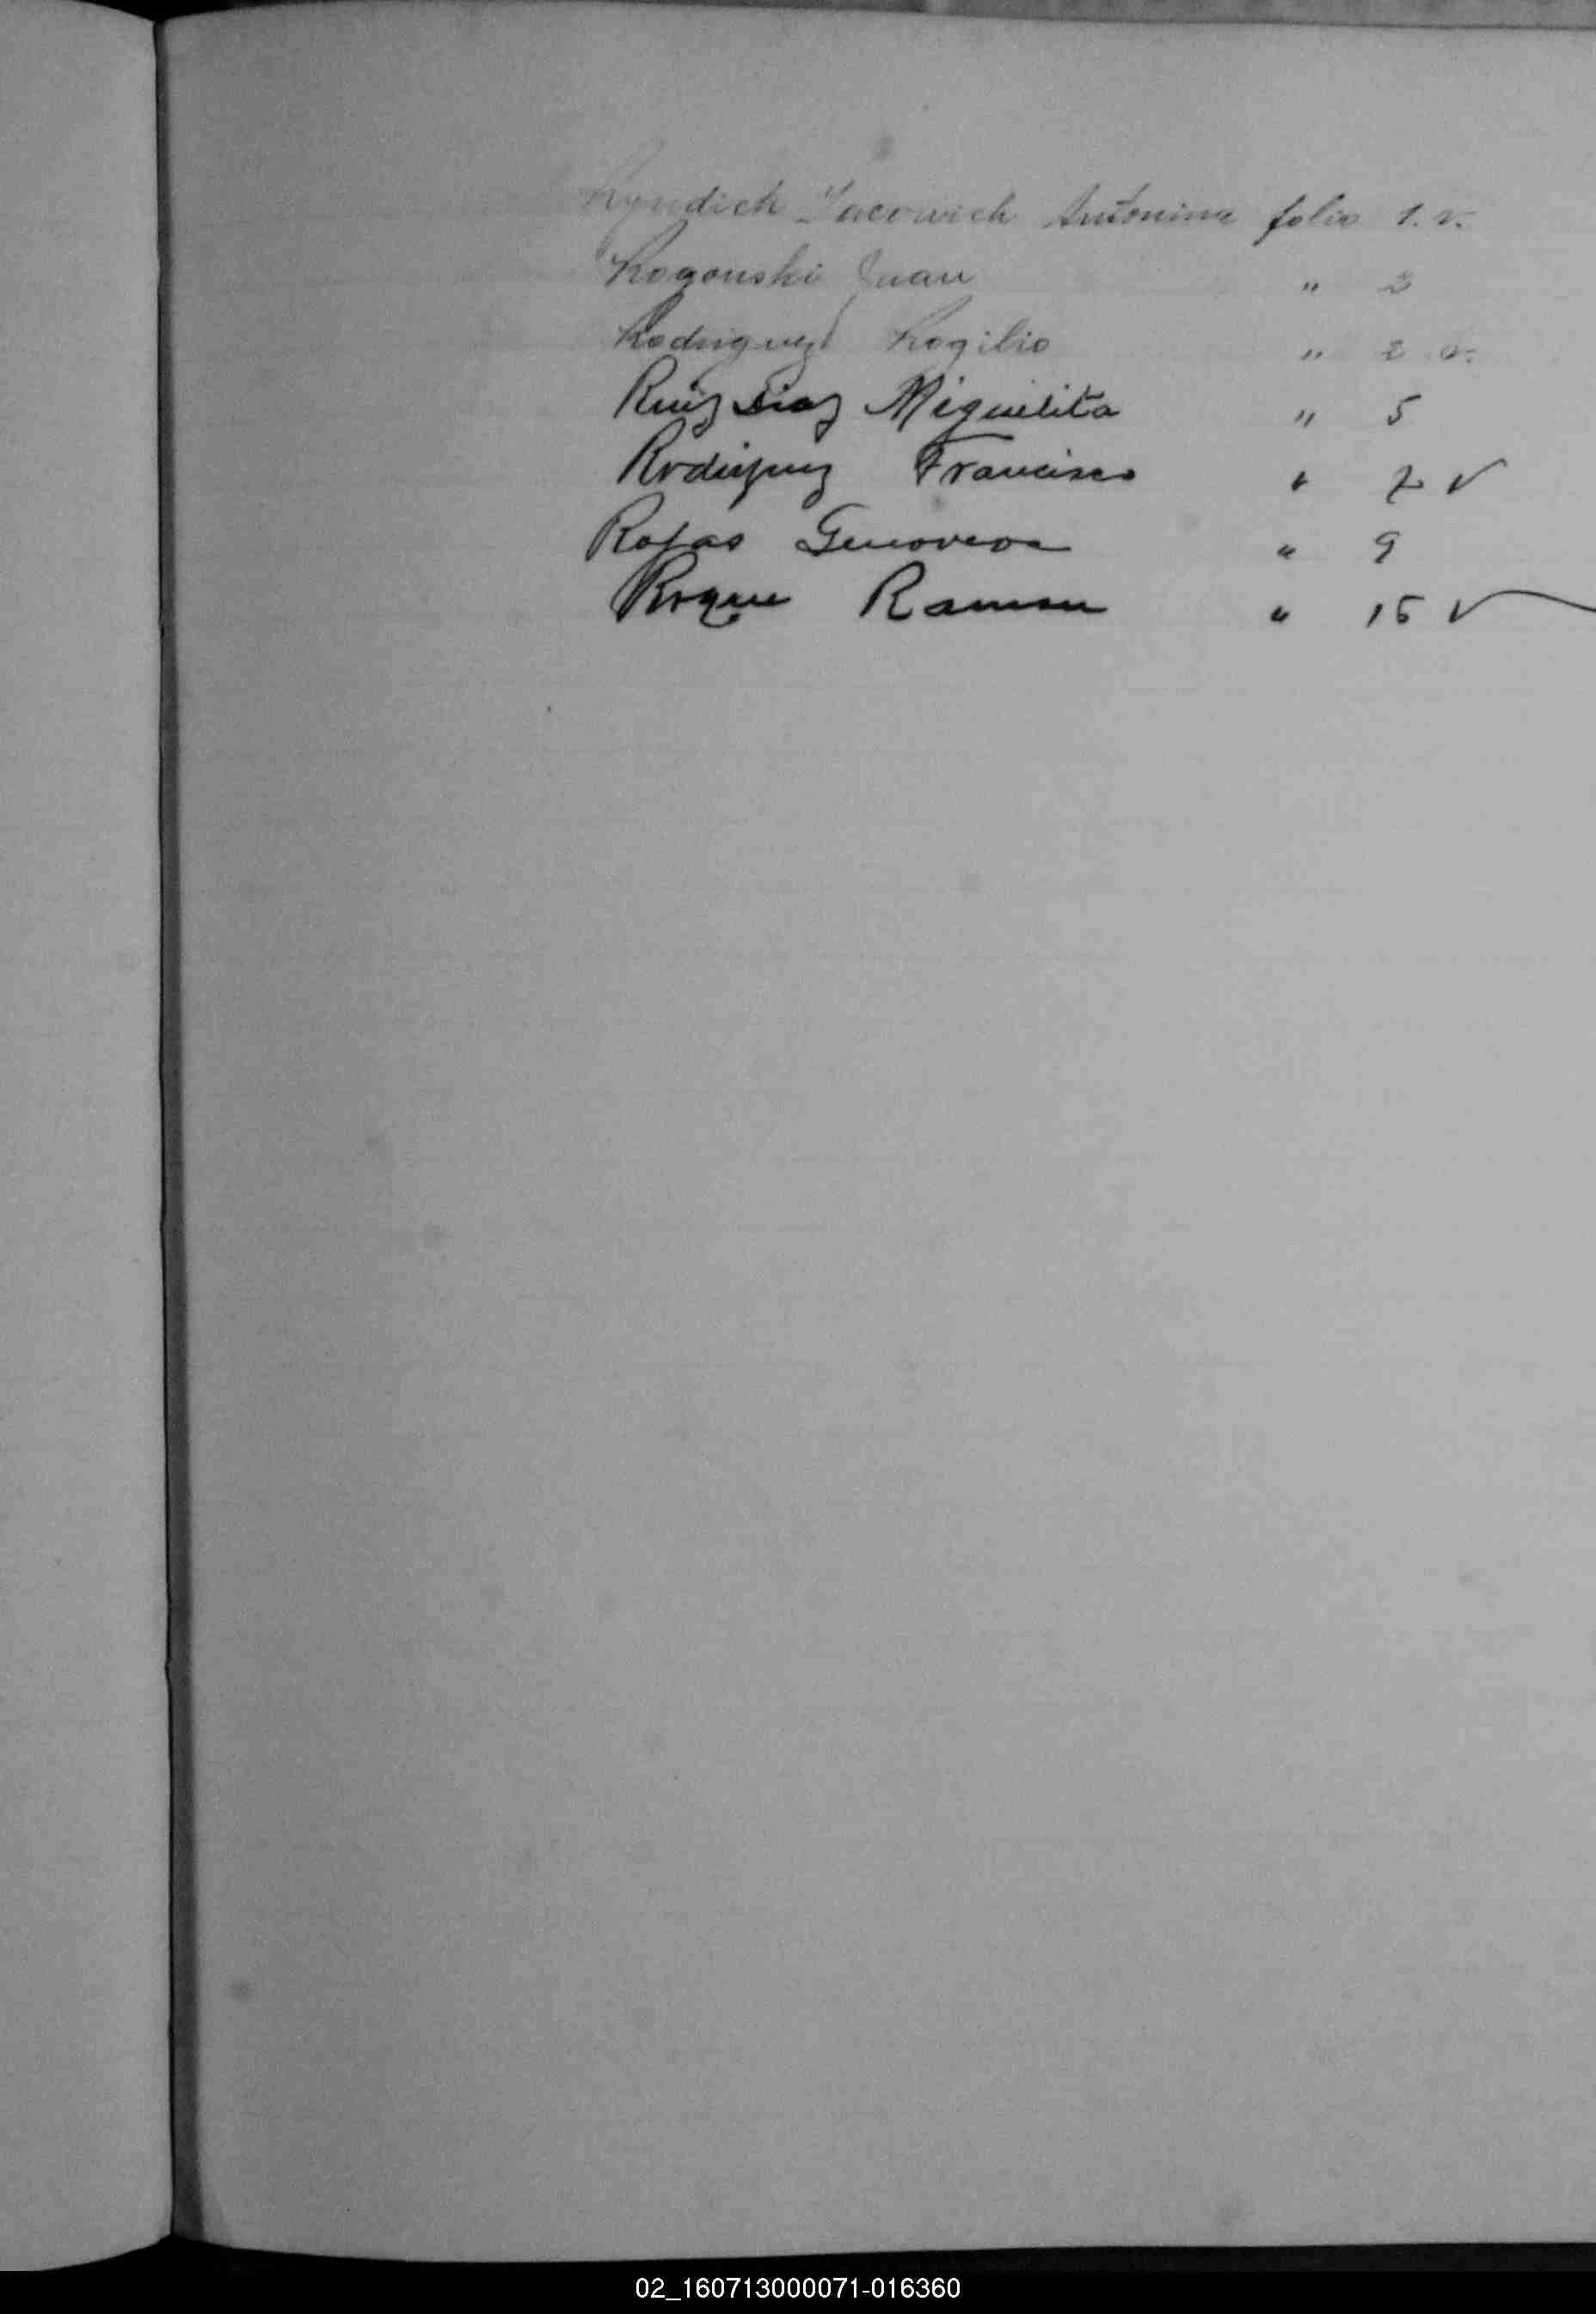 Ryndich Jacowich Antonina folio 1. v.
Rogonski Juan " 2
Rodriguez Rogilio " 2 v.
Ruiz Diaz Miguelita " 5
Rodriguez Francisco " 7 v
Rojas Genoveva " 9
Roque Ramon " 15 v
02_160713000071-016360